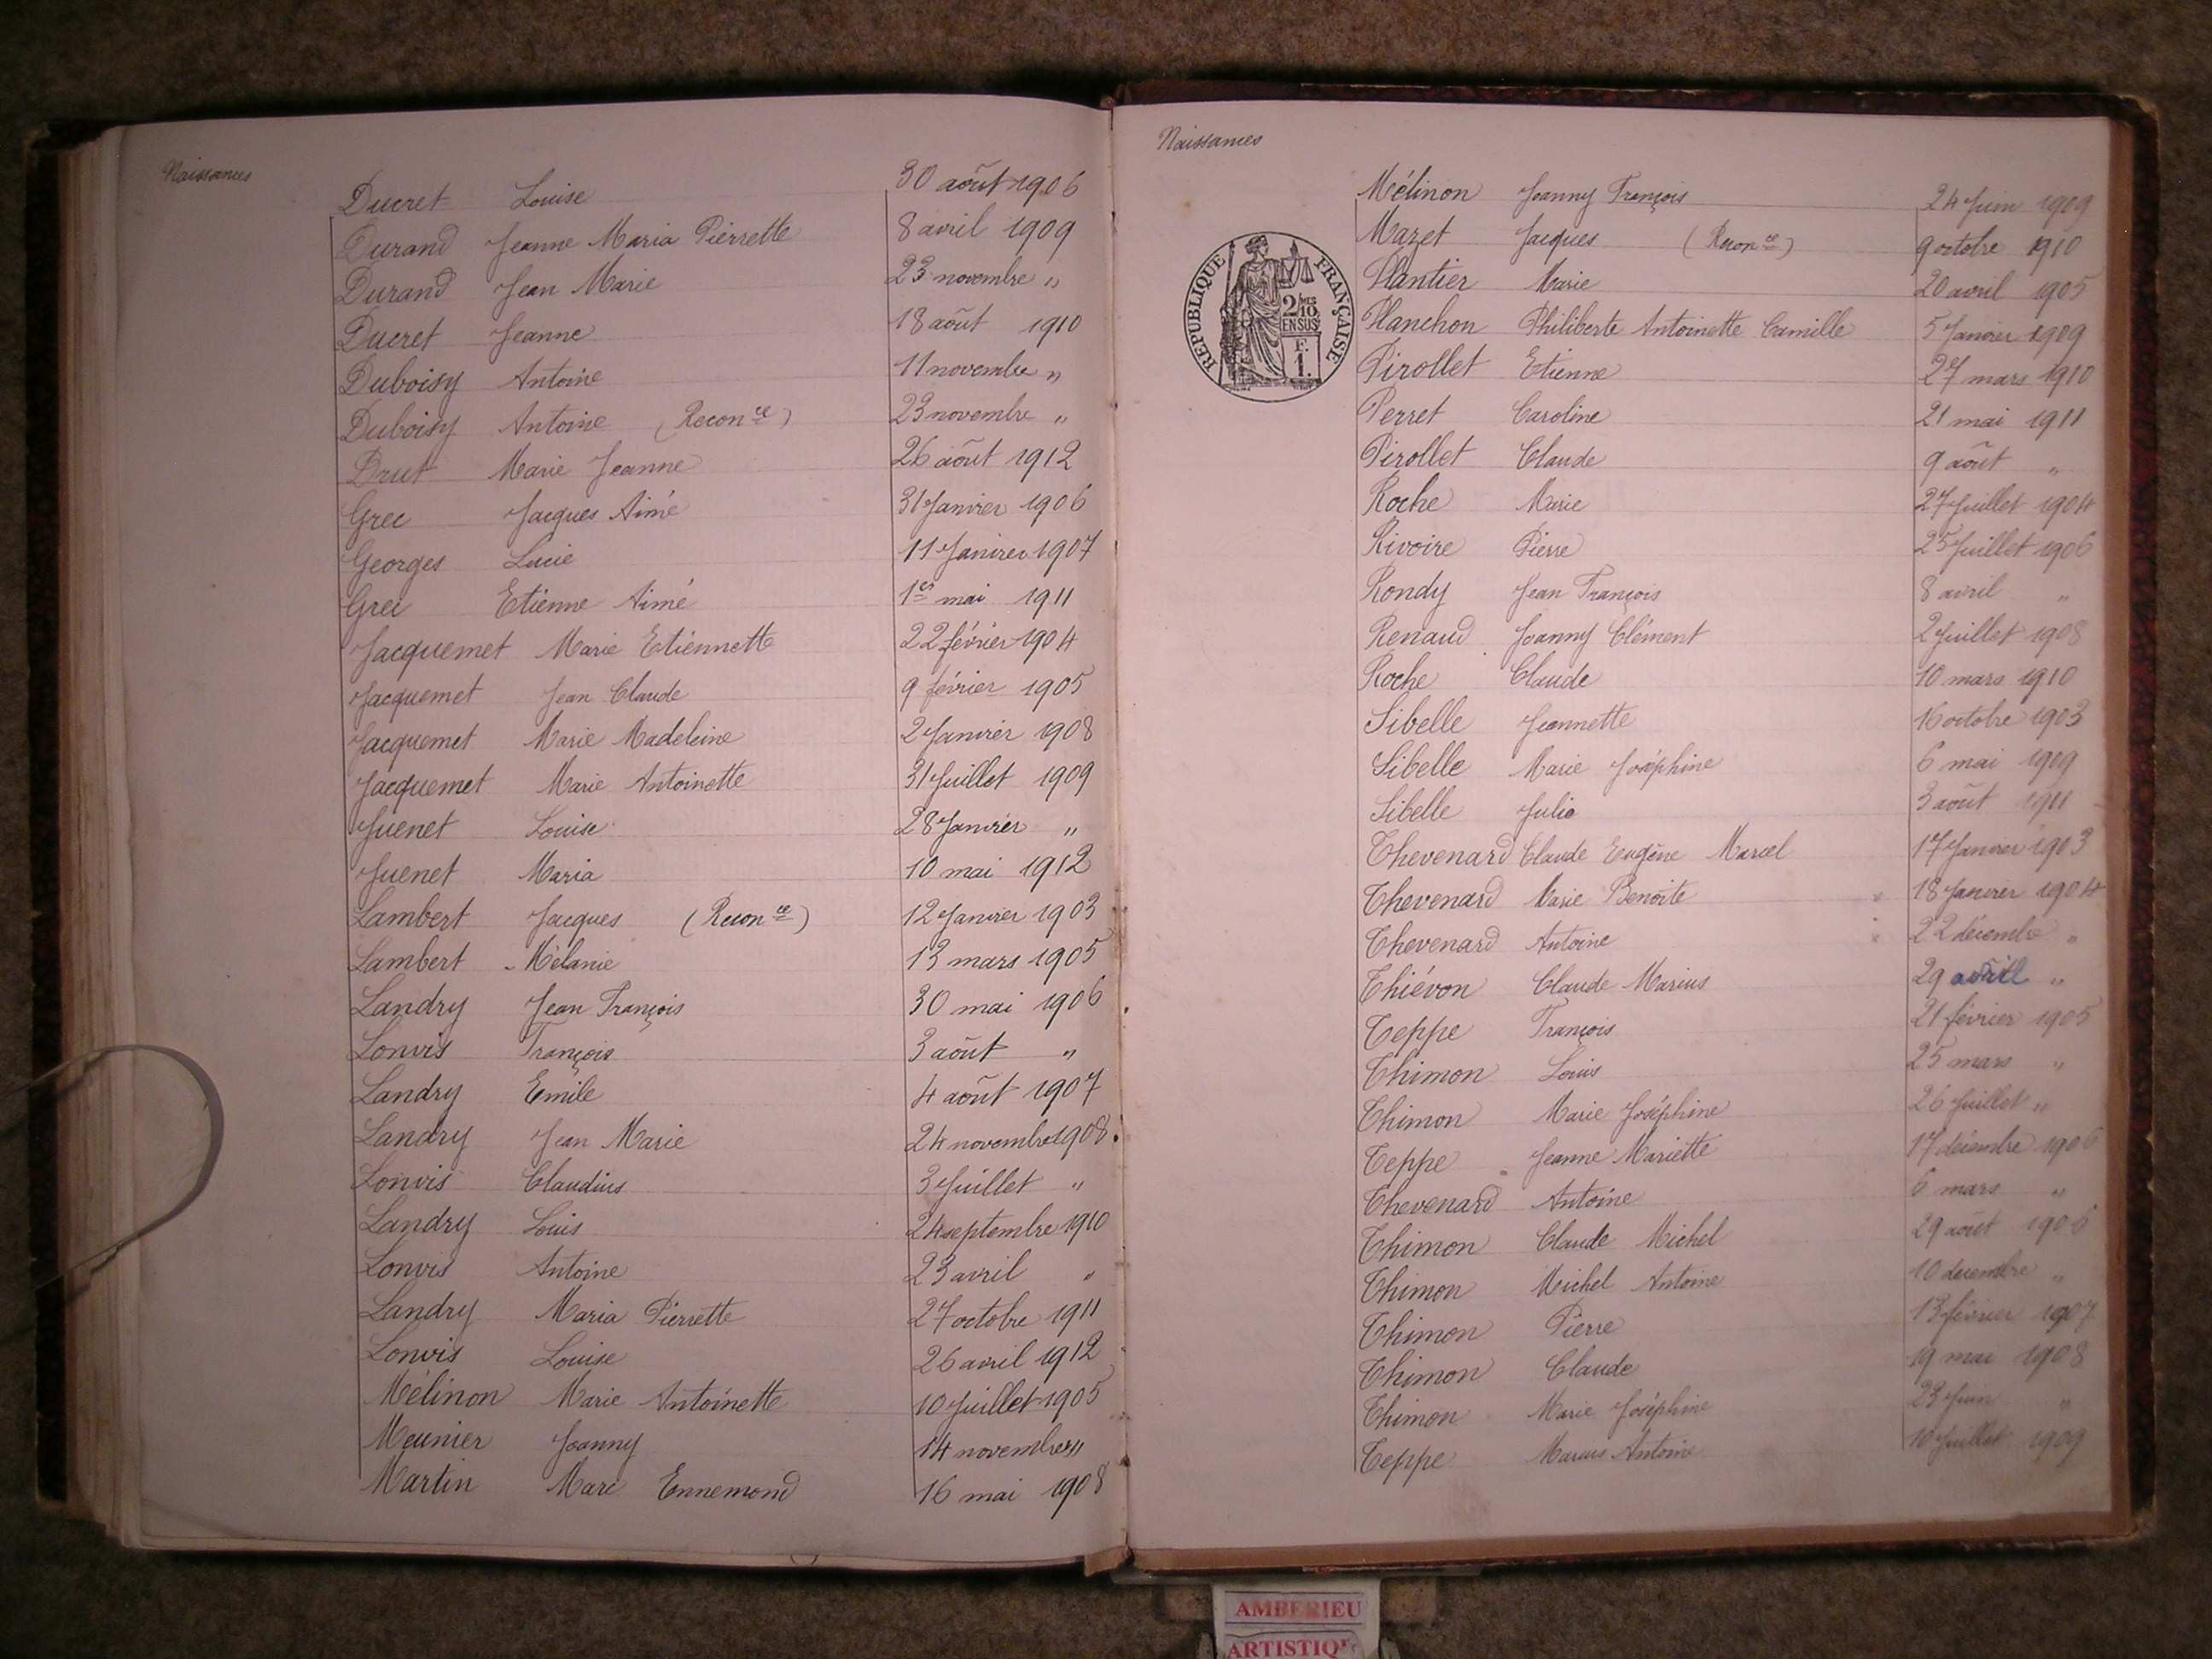 Naissances
Ducret Louise 30 août 1906
Durand Jeanne Maria Pierrette 8 avril 1909
Durand Jean Marie 23 novembre "
Ducret Jeanne 18 août 1910
Duboisy Antoine 11 novembre "
Duboisy Antoine (Reconce) 23 novembre "
Drut Marie Jeanne 26 août 1912
Grec Jacques Aimé 31 Janvier 1906
Georges Lucie 11 Janvier 1907
Grec Etienne Aimé 1er mai 1911
Jacquemet Marie Etiennette 22 février 1904
Jacquemet Jean Claude 9 février 1905
Jacquemet Marie Madeleine 2 Janvier 1908
Jacquemet Marie Antoinette 31 Juillet 1909
Juenet Louise 28 Janvier "
Juenet Maria 10 mai 1912
Lambert Jacques (Reconce) 12 Janvier 1903
Lambert Mélanie 13 mars 1905
Landry Jean François 30 mai 1906
Lonvis François 3 août "
Landry Emile 4 août 1907
Landry Jean Marie 24 novembre 1908
Lonvis Claudius 3 Juillet "
Landry Louis 24 septembre 1910
Lonvis Antoine 23 avril "
Landry Maria Pierrette 27 octobre 1911
Lonvis Louise 26 avril 1912
Mélinon Marie Antoinette 10 Juillet 1905
Meunier Joanny 14 novembre "
Martin Marc Ennemond 16 mai 1908
Naissances
RÉPUBLIQUE FRANÇAISE
2/10MES
EN SUS
F.
1.
Mélinon Joanny François 24 Juin 1909
Mazet Jacques (Reconce) 9 octobre 1910
Plantier Marie 20 avril 1905
Planchon Philiberte Antoinette Camille 5 Janvier 1909
Pirollet Etienne 27 mars 1910
Perret Caroline 21 mai 1911
Pirollet Claude 9 août "
Roche Marie 27 Juillet 1904
Rivoire Pierre 25 Juillet 1906
Rondy Jean François 8 avril "
Renaud Joanny Clément 2 Juillet 1908
Roche Claude 10 mars 1910
Sibelle Jeannette 16 octobre 1903
Sibelle Marie Joséphine 6 mai 1909
Sibelle Julie 3 août 1911
Thevenard Claude Eugène Marcel 17 Janvier 1903
Thevenard Marie Benoite 18 Janvier 1904
Thevenard Antoine 22 décembre "
Thiévon Claude Marius 29 avril "
Teppe François 21 février 1905
Thimon Louis 25 mars "
Thimon Marie Joséphine 26 Juillet "
Teppe Jeanne Mariette 17 décembre 1906
Thevenard Antoine 6 mars "
Thimon Claude Michel 29 août 1906
Thimon Michel Antoine 10 décembre "
Thimon Pierre 13 février 1907
Thimon Claude 19 mai 1908
Thimon Marie Joséphine 23 Juin "
Teppe Marius Antoine 10 Juillet 1909
AMBERIEU
ARTISTIQUE